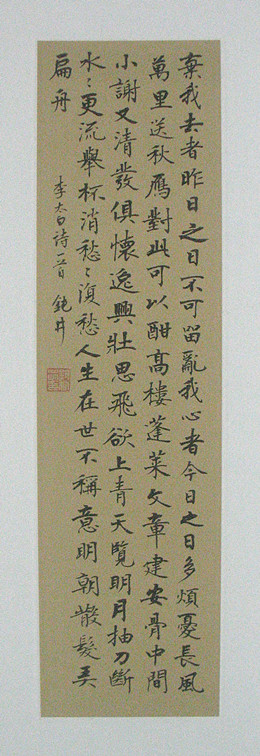 棄我去者昨日之日不可留亂我心者今日之日多煩憂長風
萬里送秋鴈對此可以酣高樓蓬萊文章建安骨中間
小謝又清發俱懷逸興壯思飛欲上青天覽明月抽刀斷
水々更流舉杯消愁々復愁人生在世不稱意明朝散髮弄
扁舟
李太白詩一首 鈍井